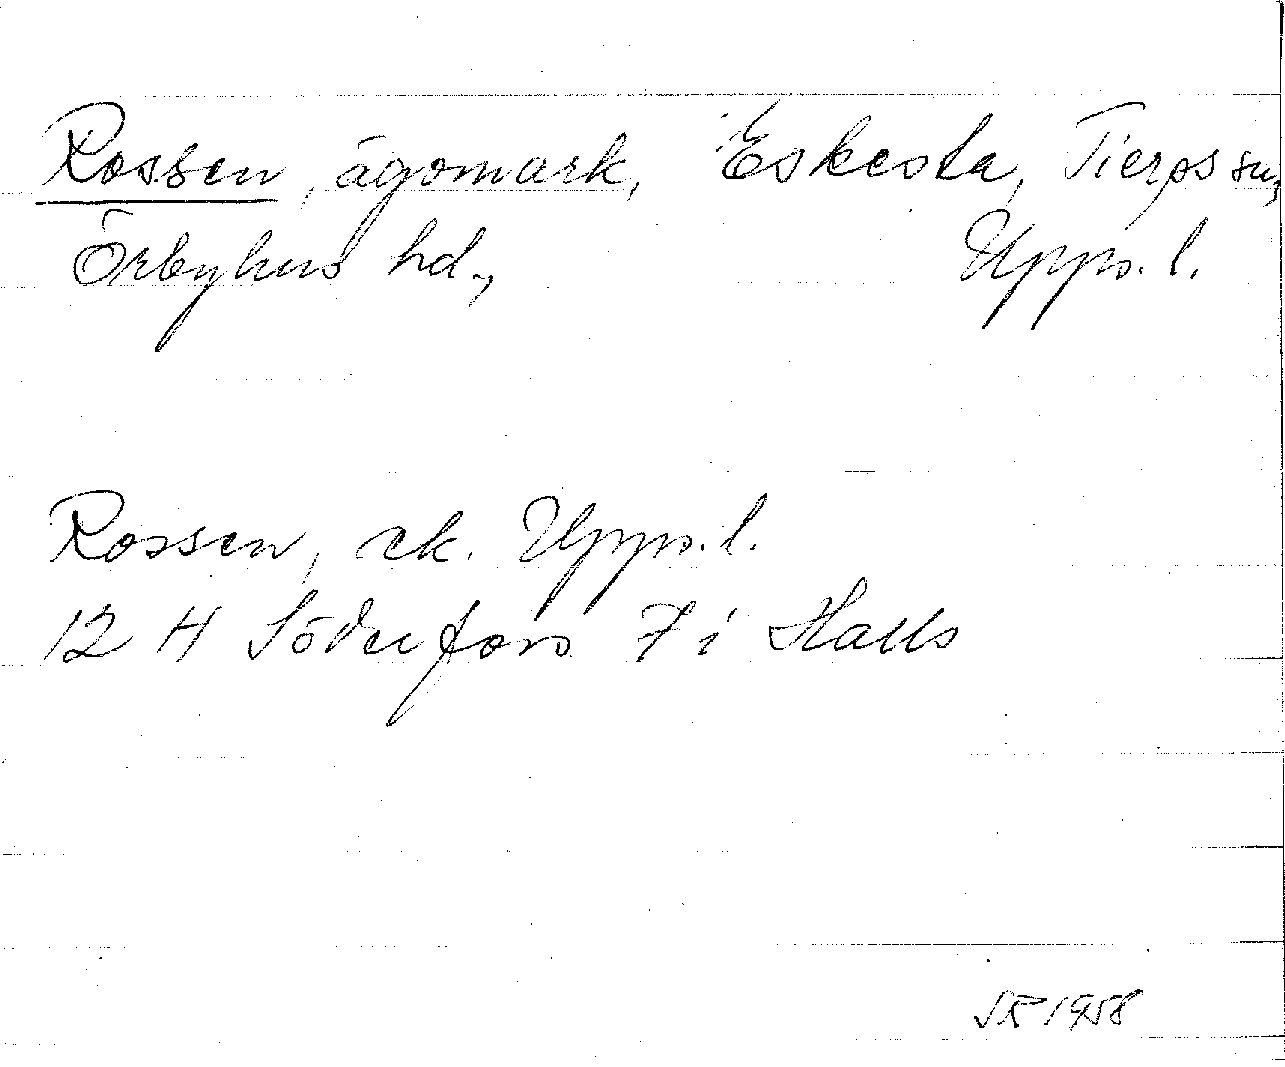 Rossen, ägomark, Eskesta, Tierps sn,
Örbyhus hd., Upps. l.
Rossen, ek. Upps. l.
12 H Söderfors 7 i Halls
1958